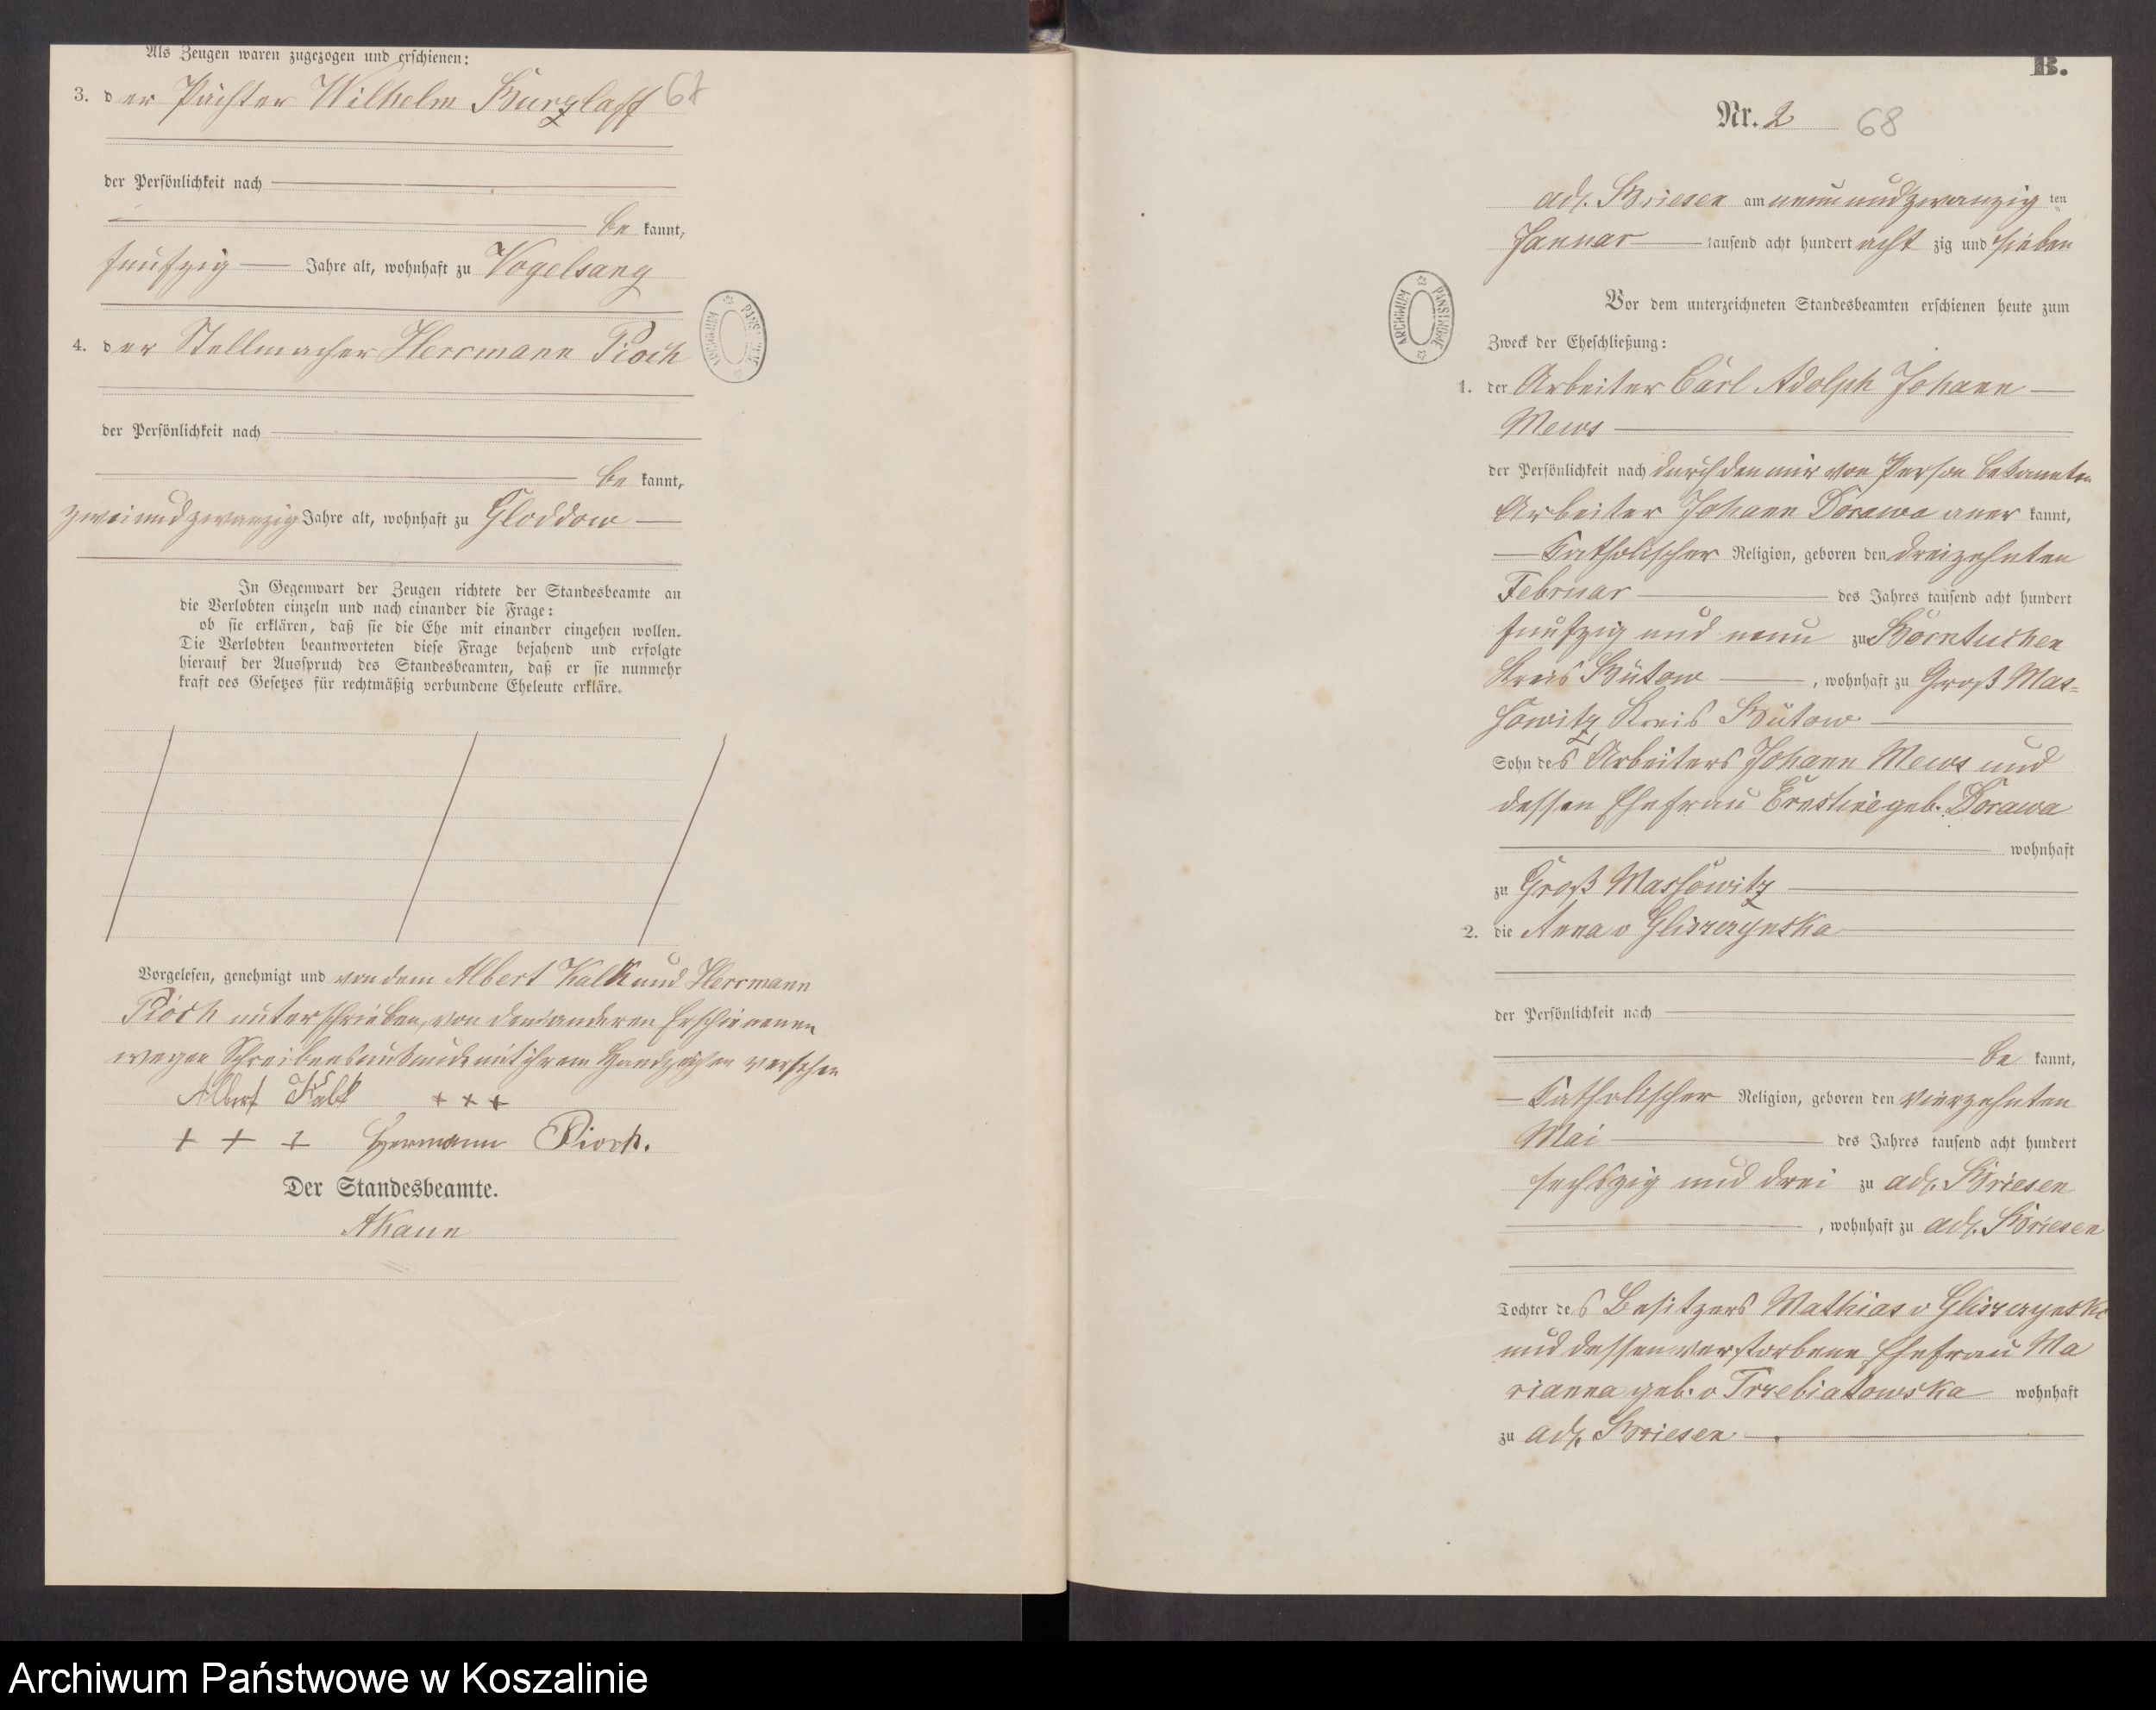 Als Zeugen waren zugezogen und erschienen:
3. der Pächter Wilhelm Burzlaff 67
der Persönlichkeit nach
be kannt,
fünfzig Jahre alt, wohnhaft zu Vogelsang
4. der Stellmacher Herrmann Pioch
der Persönlichkeit nach
be kannt,
zweiundzwanzig Jahre alt, wohnhaft zu Gloddow
In Gegenwart der Zeugen richtete der Standesbeamte an
die Verlobten einzeln und nach einander die Frage:
ob sie erklären, daß sie die Ehe mit einander eingehen wollen.
Die Verlobten beantworteten diese Frage bejahend und erfolgte
hierauf der Ausspruch des Standesbeamten, daß er sie nunmehr
kraft des Gesetzes für rechtmäßig verbundene Eheleute erkläre.
Vorgelesen, genehmigt und von dem Albert Kalk und Herrmann
Pioch unterschrieben, von den anderen Erschienenen
wegen Schreibens mit ihrem Handzeichen versehen
Albert Kalk + + +
+ + + Hermann Pioch.
Der Standesbeamte.
ARCHIWUM PAŃSTWOWE
B.
Nr. 2 68
adl. Briesen am neunundzwanzig ten
Januar tausend acht hundert acht zig und sieben
Vor dem unterzeichneten Standesbeamten erschienen heute zum
Zweck der Eheschließung:
1. der Arbeiter Carl Adolph Johann
Mews
der Persönlichkeit nach durch den mir von Person bekannten
Arbeiter Johann Dorawa aner kannt,
Katholischer Religion, geboren den dreizehnten
Februar des Jahres tausend acht hundert
fünfzig und neun zu Borntuchen
Kreis Bütow, wohnhaft zu Groß Mas=
sowitz Kreis Bütow
Sohn des Arbeiters Johann Mews und
dessen Ehefrau Ernstine geb. Dorawa
wohnhaft
zu Groß Massowitz
2. die Anna v Gliszczynska
der Persönlichkeit nach
be kannt,
Katholischer Religion, geboren den vierzehnten
Mai des Jahres tausend acht hundert
sechszig und drei zu adl. Briesen
, wohnhaft zu adl. Briesen
Tochter des Besitzers Mathias v Gliszczynski
und dessen verstorbene Ehefrau Ma
rianna geb. v Trzebiatowska wohnhaft
zu adl. Briesen
ARCHIWUM PAŃSTWOWE
Archiwum Państwowe w Koszalinie